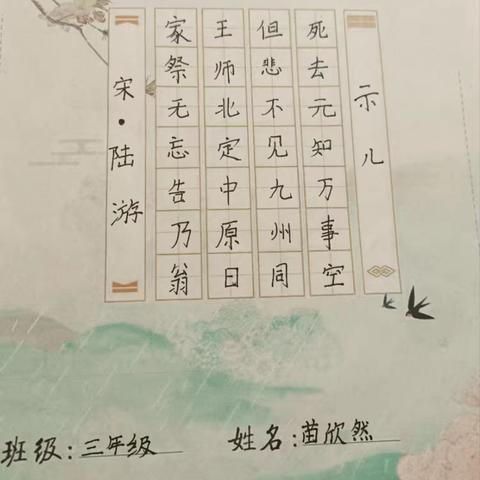 示儿
死去元知万事空
但悲不见九州同
王师北定中原日
家祭无忘告乃翁
宋·陆游
班级:三年级
姓名:苗欣然